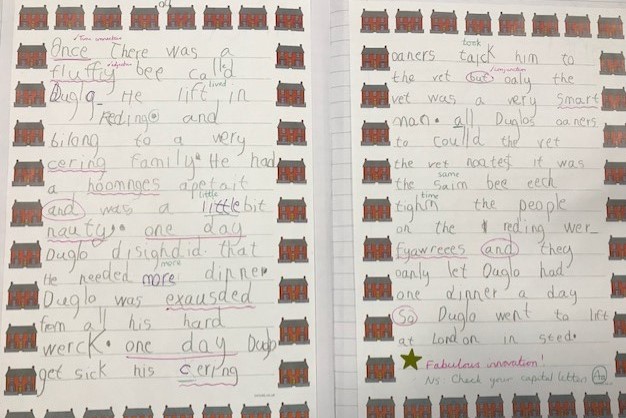 Once There was a
fluffiy bee calld
Duglo_ He lift in
lived
Reding and
bilong to a very
cering family. He had
a hoomnges apetait
little
and was a little bit
nauty. one day
Duglo disighdid that
more
He needed more dinner.
Duglo was exausded
from all his hard
werck. one day Duglo
get sick his cering
took
oaners taick him to
conjunction
the vet but oaly the
vet was a very smart
man. all Duglos oaners
to coulld the vet
the vet noates it was
same
the saim bee eech
time
tighm the people
on the reding wer_
fyawreces and they
oanly let Duglo had
one dinner a day
So Duglo went to lift
at London in sted.
Fabulous innovation!
NS: Check your capital letters